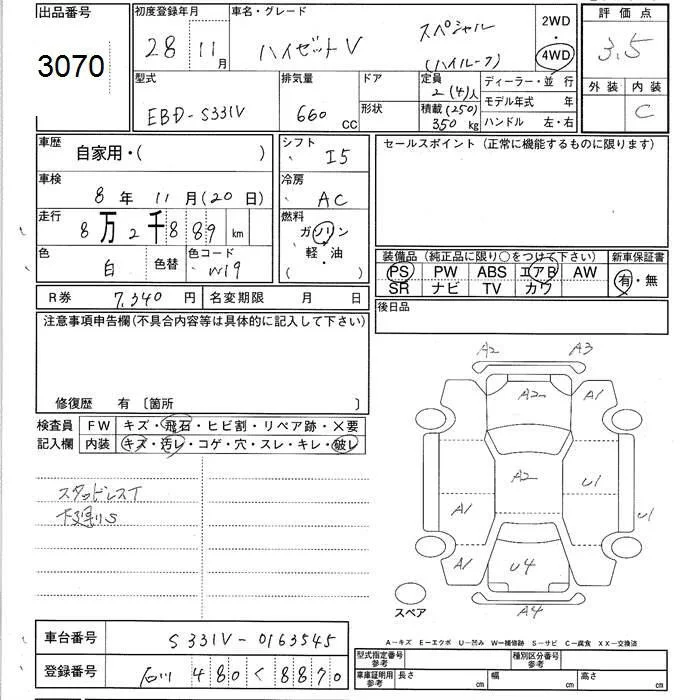 出品番号
3070
初度登録年月
28 11月
車名・グレード
ハイゼットV スペシャル
(ハイルーフ)
2WD
4WD
評価点
3.5
外装 内装
C
型式
EBD-S331V
排気量
660 cc
ドア
形状
定員
2(4)人
積載(250)
350kg
ディーラー・並行
モデル年式 年
ハンドル 左・右
車歴
自家用・( )
シフト
I5
車検
8年 11月(20日)
冷房
AC
走行
8万2千889km
燃料
ガソリン
軽・油
( )
色
白
色替
色コード
W19
R券 7,340円
名変期限 月 日
セールスポイント(正常に機能するものに限ります)
装備品(純正品に限り○をつけて下さい)
新車保証書
PS PW ABS エアB AW
SR ナビ TV カワ
有・無
後日品
注意事項申告欄(不具合内容等は具体的に記入して下さい)
修復歴 有 〔箇所 〕
検査員
記入欄
FW キズ・飛石・ヒビ割・リペア跡・×要
内装 キズ・汚レ・コゲ・穴・スレ・キレ・破レ
スタッドレスT
下廻りS
A2 A3
A2 A1
A2 U1
A1 U1
A1 U4
A4
スペア
A-キズ E-エクボ U-凹み W-補修跡 S-サビ C-腐食 XX-交換済
車台番号
S331V-0163545
登録番号
石川 480 く 8870
型式指定番号
参考
種別区分番号
参考
車庫証明用
参考
長さ cm 幅 cm 高さ cm